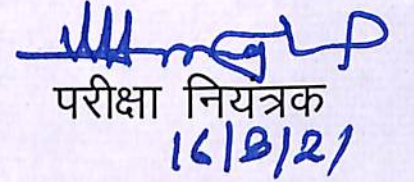 परीक्षा नियत्रक
16/8/21